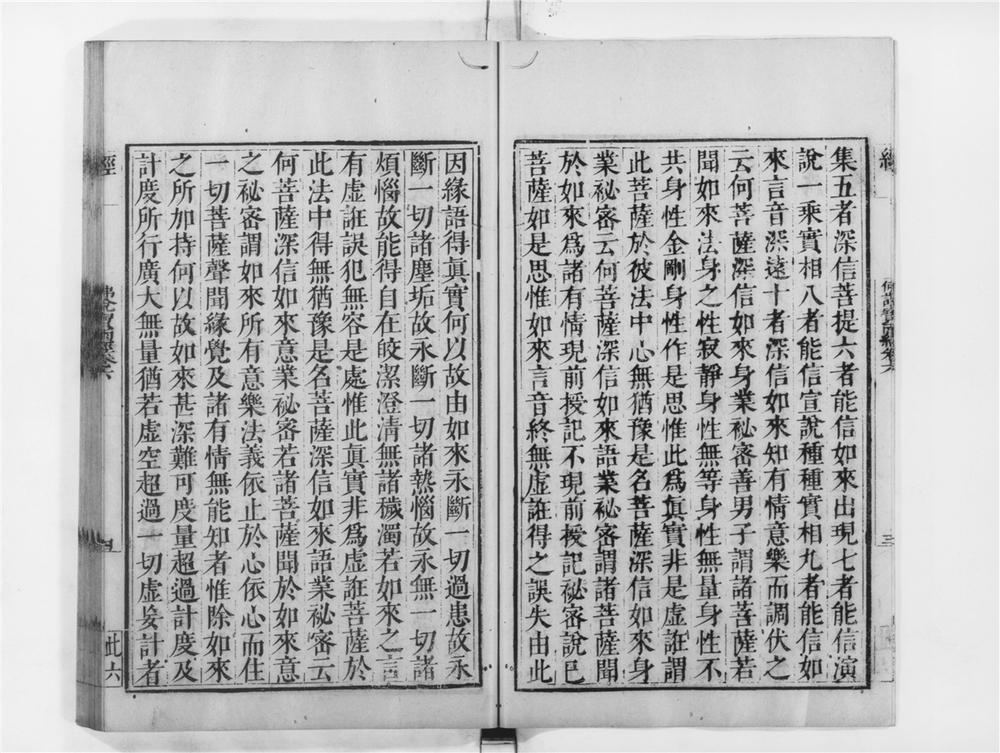 集五者深信菩提六者能信如來出現七者能信演
說一乘實相八者能信宣說種種實相九者能信如
來言音深遠十者深信如來知有情意樂而調伏之
云何菩薩深信如來身業祕密善男子謂諸菩薩若
聞如來法身之性寂靜身性無等身性無量身性不
共身性金剛身性作是思惟此爲眞實非是虛誑謂
此菩薩於彼法中心無猶豫是名菩薩深信如來身
業祕密云何菩薩深信如來語業祕密謂諸菩薩聞
於如來爲諸有情現前授記不現前授記祕密說已
菩薩如是思惟如來言音終無虛誑得之誤失由此
因緣語得眞實何以故由如來永斷一切過患故永
斷一切諸塵垢故永斷一切諸熱惱故永無一切諸
煩惱故能得自在皎潔澄清無諸穢濁若如來之言
有虛誑誤犯無容是處惟此眞實非爲虛誑菩薩於
此法中得無猶豫是名菩薩深信如來語業祕密云
何菩薩深信如來意業祕密若諸菩薩聞於如來意
之祕密謂如來所有意樂法義依止於心依心而住
一切菩薩聲聞緣覺及諸有情無能知者惟除如來
之所加持何以故如來甚深難可度量超過計度及
計度所行廣大無量猶若虛空超過一切虛妄計者
經
此六